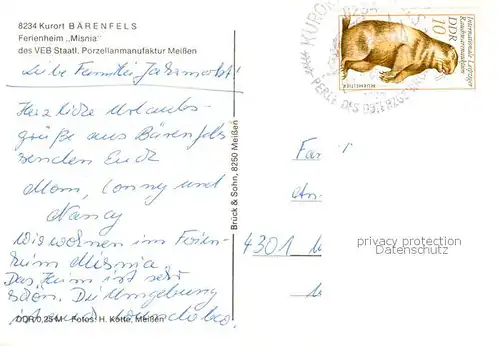 8234 Kurort BÄRENFELS
Ferienheim „Misnia"
des VEB Staatl. Porzellanmanufaktur Meißen
Liebe Familie Jahrmarkt!
Herzliche Urlaubs-
grüße aus Bärenfels
senden Euch
Conny und
Nancy
Wir wohnen im Ferien-
heim Misnia.
Das Heim ist sehr
schön. Die Umgebung
ist auch
DDR 0,25 M Fotos: H. Kötte, Meißen
Brück & Sohn, 8250 Meißen
8234
KUROR
PERLE DES OSTERZGE
Internationale Leipziger
Rauchwarenauktion
DDR
10
MURMELTIER
Fa
An
4301
privacy protection
Datenschutz